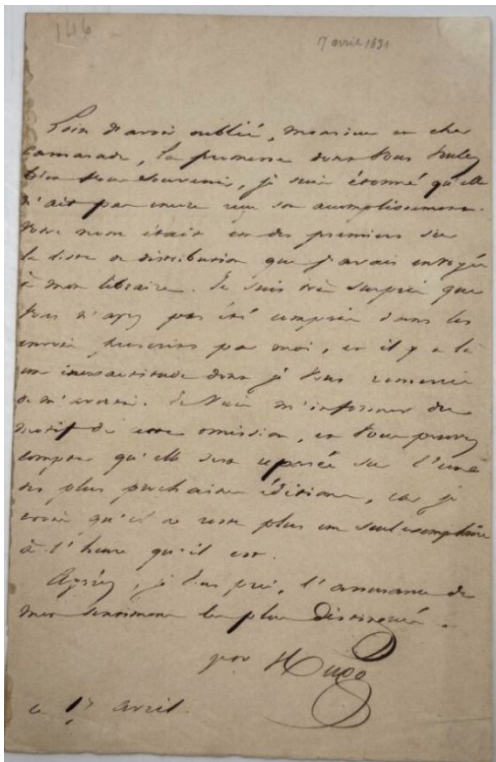 146
17 avril 1831
Loin d'avoir oublié, monsieur et cher
camarade, la promesse dont vous voulez
bien vous souvenir, je suis étonné qu'elle
n'ait pas encore reçu son accomplissement.
Votre nom était un des premiers sur
la liste de distribution que j'avais envoyée
à mon libraire. Je suis très surpris que
vous n'ayez pas été compris dans les
envois prescrits par moi, et il y a là
une inexactitude dont je vous remercie
de m'avertir. Je vais m'informer du
motif de cette omission, et vous pouvez
compter qu'elle sera réparée sur l'une
des plus prochaines éditions, car je
crois qu'il ne reste plus un seul exemplaire
à l'heure qu'il est.
Agréez, je vous prie, l'assurance de
mes sentiments les plus distingués.
Hugo
ce 17 avril.